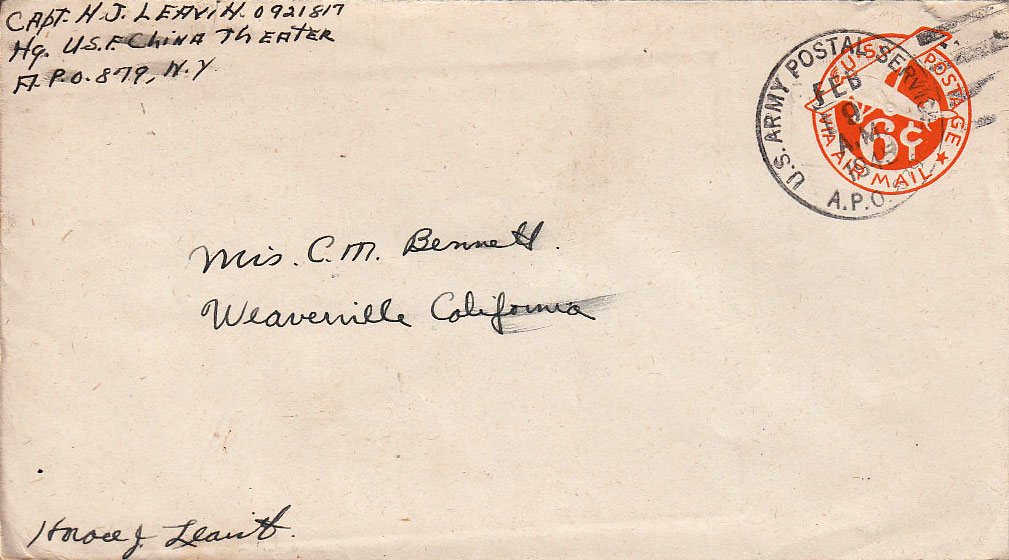 Capt. H. J. LEAVITT. 0921817
Hq. U.S.F. China Theater
A.P.O. 879, N.Y.
U.S. ARMY POSTAL SERVICE
FEB
9
A.M.
A.P.O.
U.S. POSTAGE
6¢
VIA AIR MAIL
Mrs. C. M. Bennett.
Weaverville California
Horace J. Leavitt.